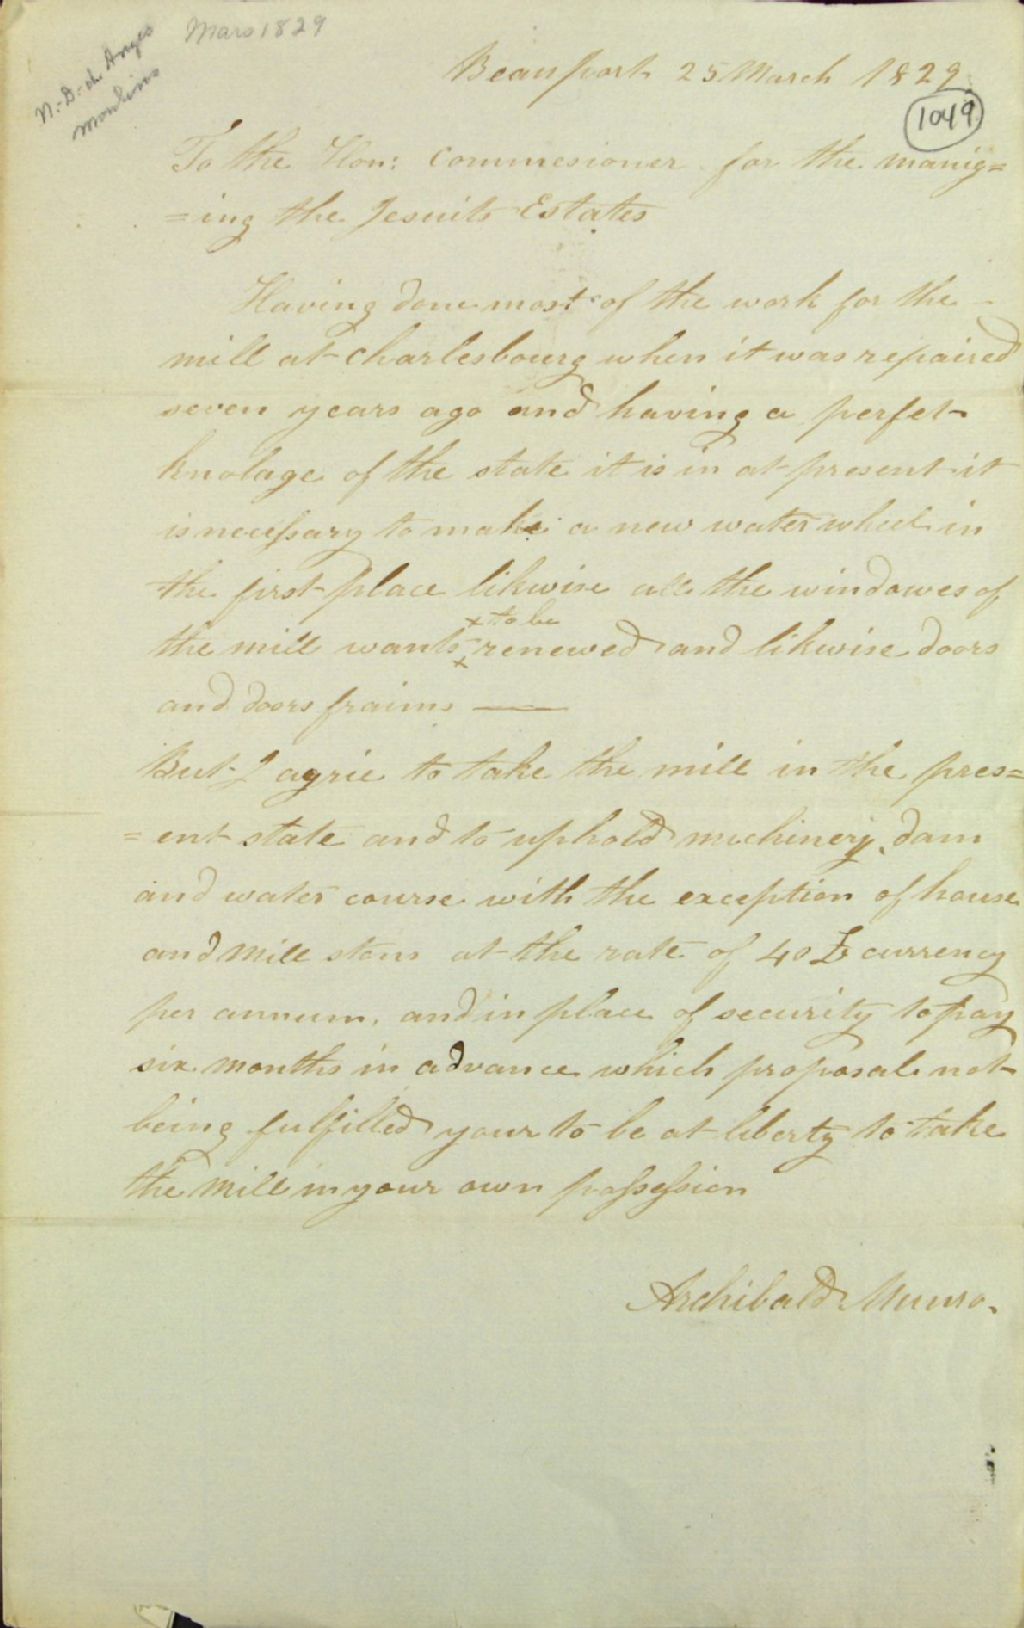 Mars 1829
N.-D.-d. Anges
moulins
Beauport 25 March 1829
1049
To the Hon: Commesioner for the manig=
=ing the Jesuits Estates
Having done most of the work for the
mill at Charlesbourg when it was repaired
seven years ago and having a perfet
knolage of the state it is in at present it
is necessary to make a new water wheel in
the first place likwise all the windowes of
x to be
the mill wants x renewed and likwise doors
and doors fraims —
But I agrie to take the mill in the pres=
=ent state and to uphold machinery, dam
and water course with the exception of house
and mill stons at the rate of 40 £ currency
per annum, and in place of security to pay
six months in advance which proposal not
being fulfilled your to be at liberty to take
the mill in your own possession
Archibald Munro.